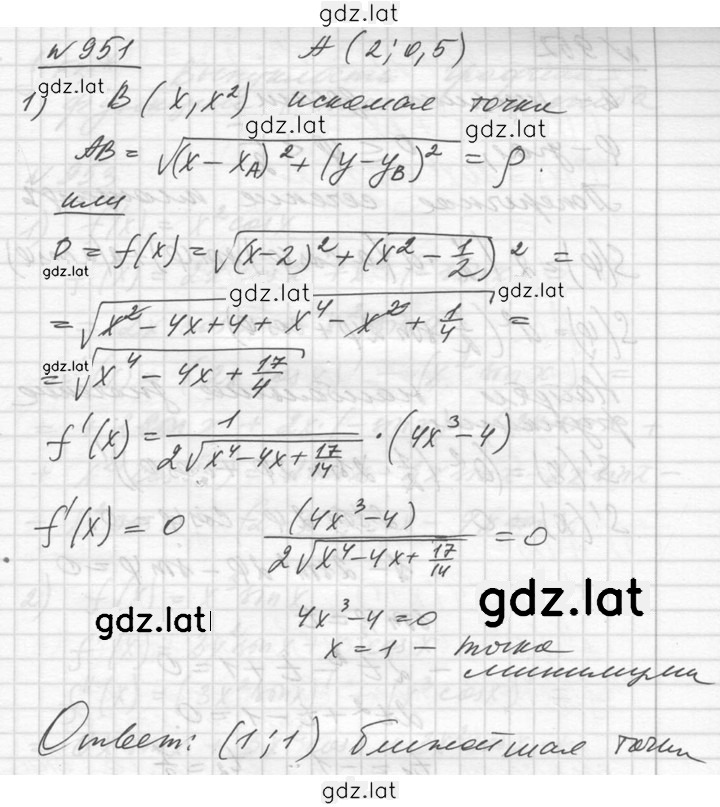 gdz.lat
№951 A(2; 0,5)
gdz.lat
1) B(x, x²) искомая точка
gdz.lat gdz.lat
AB = √((x - x_A)² + (y - y_B)²) = ρ.
или
D = f(x) = √((x-2)² + (x² - 1/2))² =
gdz.lat
gdz.lat gdz.lat
= √(x² - 4x + 4 + x⁴ - x² + 1/4) =
gdz.lat
= √(x⁴ - 4x + 17/4)
f'(x) = 1/(2√(x⁴-4x+17/14)) · (4x³-4)
f'(x) = 0 (4x³-4)/(2√(x⁴-4x+17/14)) = 0
gdz.lat gdz.lat
4x³-4=0
x=1 - точка
минимума
Ответ: (1;1) ближайшая точки
gdz.lat